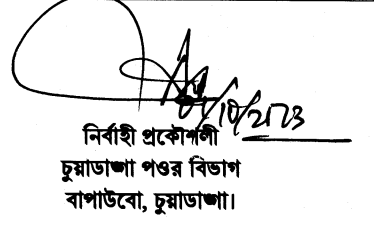 /10/2023
নির্বাহী প্রকৌশলী
চুয়াডাঙ্গা পওর বিভাগ
বাপাউবো, চুয়াডাঙ্গা।